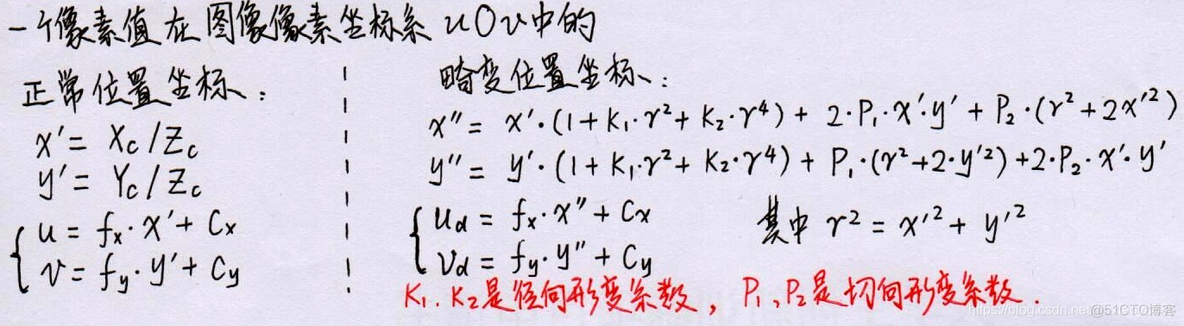 一个像素值在图像像素坐标系 uOv中的
正常位置坐标：
x' = Xc / Zc
y' = Yc / Zc
u = fx · x' + Cx
v = fy · y' + Cy
畸变位置坐标：
x'' = x' · (1 + K₁ · r² + K₂ · r⁴) + 2 · P₁ · x' · y' + P₂ · (r² + 2x'²)
y'' = y' · (1 + K₁ · r² + K₂ · r⁴) + P₁ · (r² + 2 · y'²) + 2 · P₂ · x' · y'
ud = fx · x'' + Cx
vd = fy · y'' + Cy
其中 r² = x'² + y'²
K₁、K₂是径向形变系数，P₁，P₂是切向形变系数．
https://blog.csdn.net @51CTO博客